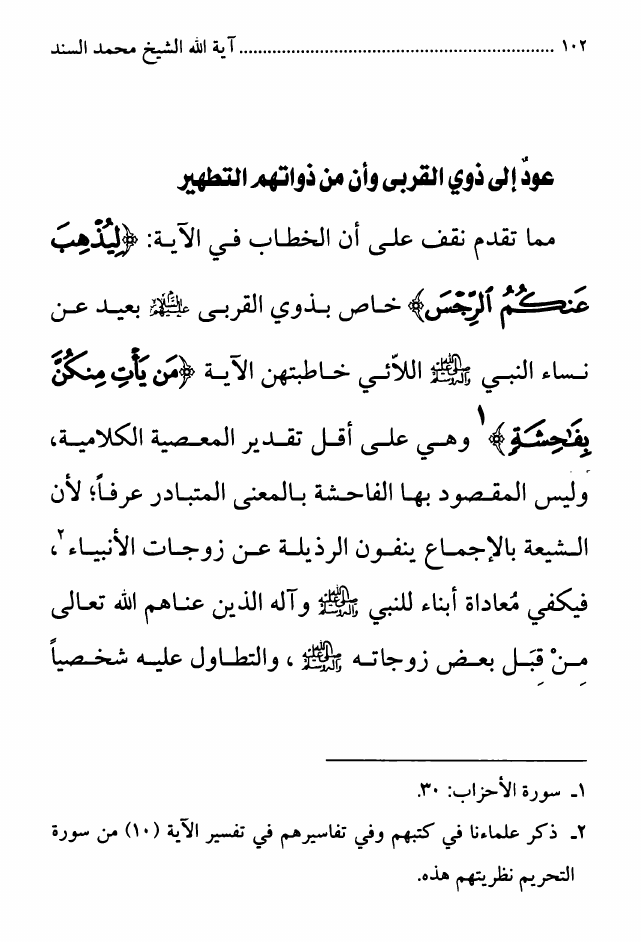 ١٠٢ ............................................................ آية الله الشيخ محمد السند
عودٌ إلى ذوي القربى وأن من ذواتهم التطهير
مما تقدم نقف على أن الخطاب في الآية: ﴿لِيُذْهِبَ
عَنكُمُ ٱلرِّجْسَ﴾ خاص بذوي القربى عليهم السلام بعيد عن
نساء النبي ﷺ اللاّئي خاطبتهن الآية ﴿مَن يَأْتِ مِنكُنَّ
بِفَٰحِشَةٍ﴾١ وهي على أقل تقدير المعصية الكلامية،
وليس المقصود بها الفاحشة بالمعنى المتبادر عرفاً؛ لأن
الشيعة بالإجماع ينفون الرذيلة عن زوجات الأنبياء٢،
فيكفي مُعاداة أبناء للنبي ﷺ وآله الذين عناهم الله تعالى
مِنْ قِبَل بعض زوجاته ﷺ، والتطاول عليه شخصياً
١ـ سورة الأحزاب: ٣٠.
٢ـ ذكر علماءنا في كتبهم وفي تفاسيرهم في تفسير الآية (١٠) من سورة
التحريم نظريتهم هذه.